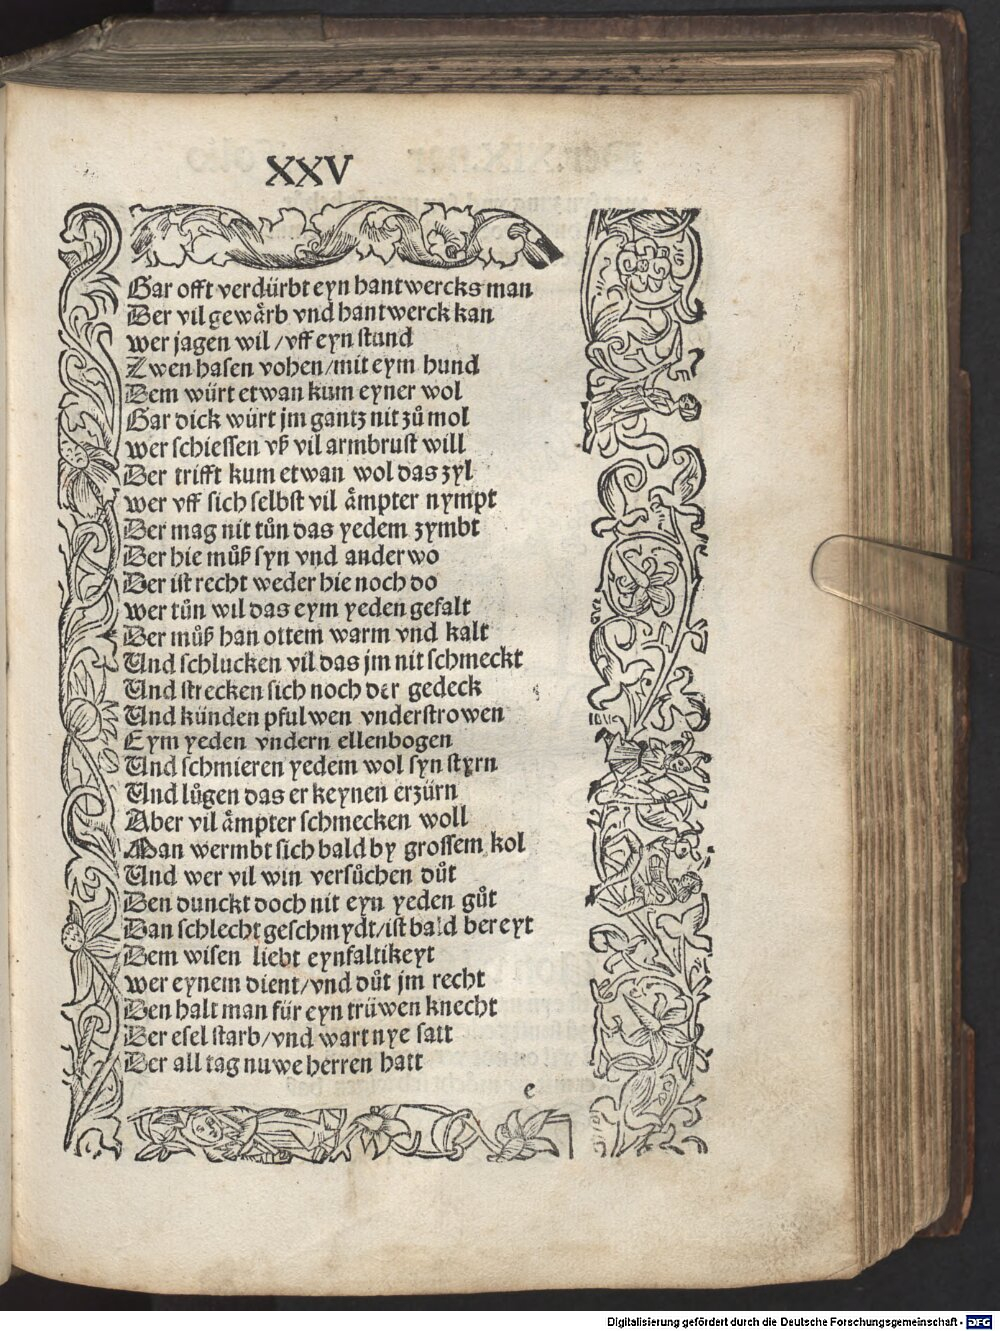 XXV
Gar offt verdürbt eyn hantwercks man
Der vil gewårb vnd hantwerck kan
wer jagen wil / vff eyn stund
Zwen hasen vohen / mit eym hund
Dem würt etwan kum eyner wol
Gar dick würt jm gantz nit zů mol
wer schiessen vß vil armbrust will
Der trifft kum etwan wol das zyl
wer vff sich selbst vil åmpter nympt
Der mag nit tůn das yedem zymbt
Der hie můß syn vnd anderwo
Der ist recht weder hie noch do
wer tůn wil das eym yeden gefalt
Der můß han ottem warm vnd kalt
Und schlucken vil das jm nit schmeckt
Und strecken sich noch der gedeck
Und künden pfulwen vnderstrowen
Eym yeden vndern ellenbogen
Und schmieren yedem wol syn styrn
Und lůgen das er keynen erzürn
Aber vil åmpter schmecken woll
Man wermbt sich bald by grossem kol
Und wer vil win versůchen důt
Den dunckt doch nit eyn yeden gůt
Dan schlecht geschmydt / ist bald bereyt
Dem wisen liebt eynfaltikeyt
wer eynem dient / vnd důt jm recht
Den halt man für eyn trüwen knecht
Der esel starb / vnd wart nye satt
Der all tag nuwe herren hatt
e
Digitalisierung gefördert durch die Deutsche Forschungsgemeinschaft - DFG